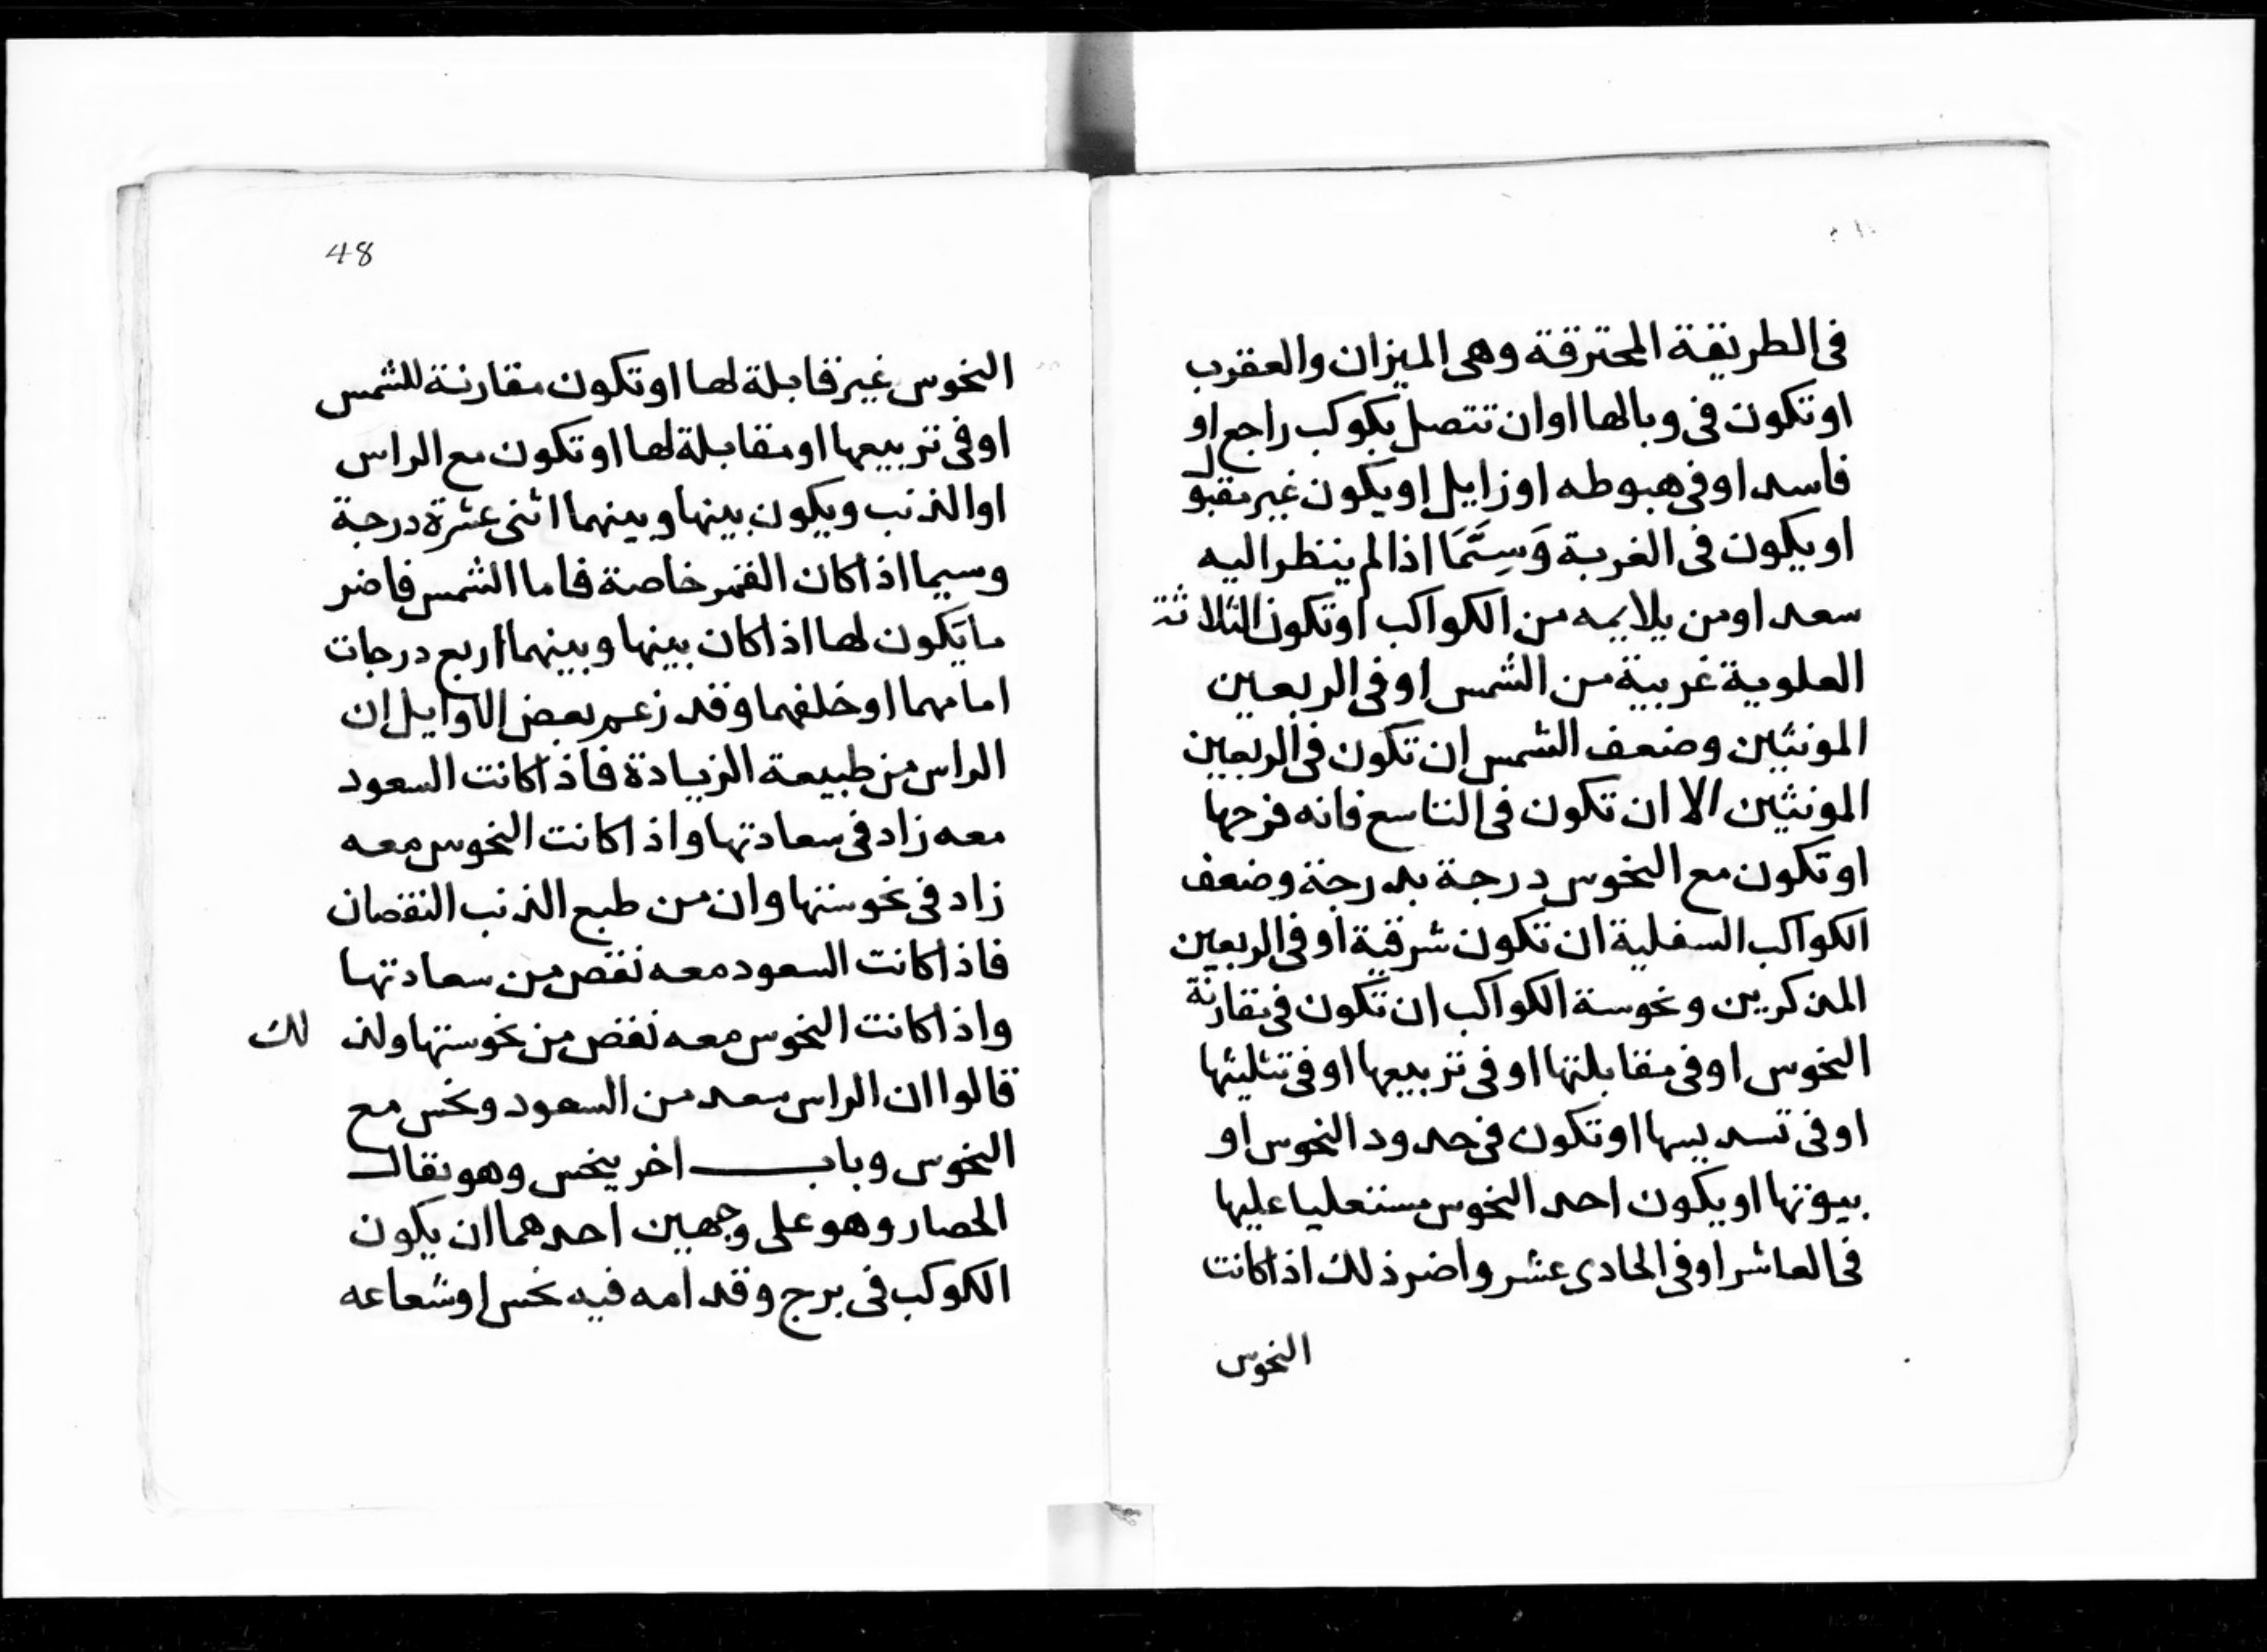 فى الطريقة المحترقة وهى الميزان والعقرب
او تكون فى وبالها او ان تتصل بكوكب راجع او
فاسد او فى هبوطه او زايل او يكون غير مقبول
او يكون فى الغربة وَسِتَّمَا اذا لم ينظر اليه
سعد او من يلايمه من الكواكب او تكون الثلاثة
العلوية غربية من الشمس او فى الربعين
المونثين وضعف الشمس ان تكون فى الربعين
المونثين الا ان تكون فى التاسع فانه فرحها
او تكون مع النحوس درجة بدرجة وضعف
الكواكب السفلية ان تكون شرقية او فى الربعين
المذكرين ونحوسة الكواكب ان تكون فى مقارنة
النحوس او فى مقابلتها او فى تربيعها او فى تثليثها
او فى تسديسها او تكون فى حدود النحوس او
بيوتها او يكون احد النحوس مستعليا عليها
فى العاشر او فى الحادى عشر واضر ذلك اذا كانت
النحوس
48
النحوس غير قابلة لها او تكون مقارنة للشمس
او فى تربيعها او مقابلة لها او تكون مع الراس
او الذنب ويكون بينها وبينهما اثنى عشرة درجة
وسيما اذا كان القمر خاصة فاما الشمس فاضر
ما يكون لها اذا كان بينها وبينهما اربع درجات
امامهما او خلفهما وقد زعم بعض الاوايل ان
الراس من طبيعة الزيادة فاذا كانت السعود
معه زاد فى سعادتها واذا كانت النحوس معه
زاد فى نحوستها وان من طبع الذنب النقصان
فاذا كانت السعود معه نقص من سعادتها
واذا كانت النحوس معه نقص من نحوستها ولذلك
قالوا ان الراس سعد من السعود ونحس مع
النحوس وباب اخر ينحس وهو يقال
الحصار وهو على وجهين احدهما ان يكون
الكوكب فى برج وقد امه فيه نحس او شعاعه